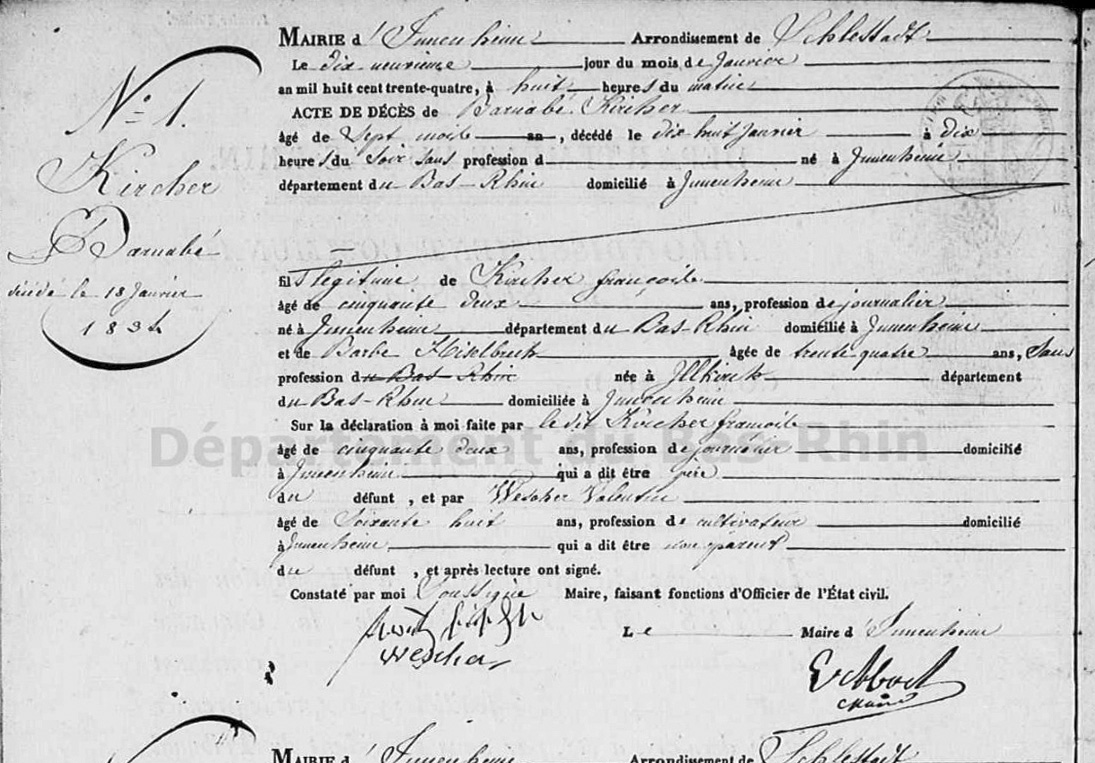 MAIRIE d'Innenheim Arrondissement de Schlestadt
Le dix neuvieme jour du mois de Janvier
an mil huit cent trente-quatre, à huit heures du matin
ACTE DE DÉCÈS de Barnabé Kircher
âgé de Sept mois an, décédé le dix huit Janvier à dix
heures du Soir Sans profession d né à Innenheim
département du Bas-Rhin domicilié à Innenheim
N° 1.
Kircher
Barnabé
décédé le 18 Janvier
1834
fils légitime de Kircher françois
âgé de cinquante deux ans, profession de journalier
né à Innenheim département du Bas-Rhin domicilié à Innenheim
et de Barbe âgée de trente-quatre ans, Sans
profession du Bas-Rhin née à Illkirch département
du Bas-Rhin domiciliée à Innenheim
Sur la déclaration à moi faite par le dit Kircher francois
âgé de cinquante deux ans, profession de journalier domicilié
à Innenheim qui a dit être père
du défunt, et par Wescher Valentin
âgé de Soixante huit ans, profession de cultivateur domicilié
à Innenheim qui a dit être non parent
du défunt, et après lecture ont signé.
Constaté par moi Soussigné Maire, faisant fonctions d'Officier de l'État civil.
Le Maire d'Innenheim
Wescher
Département du Bas-Rhin
MAIRIE d'Innenheim Arrondissement de Schlestadt